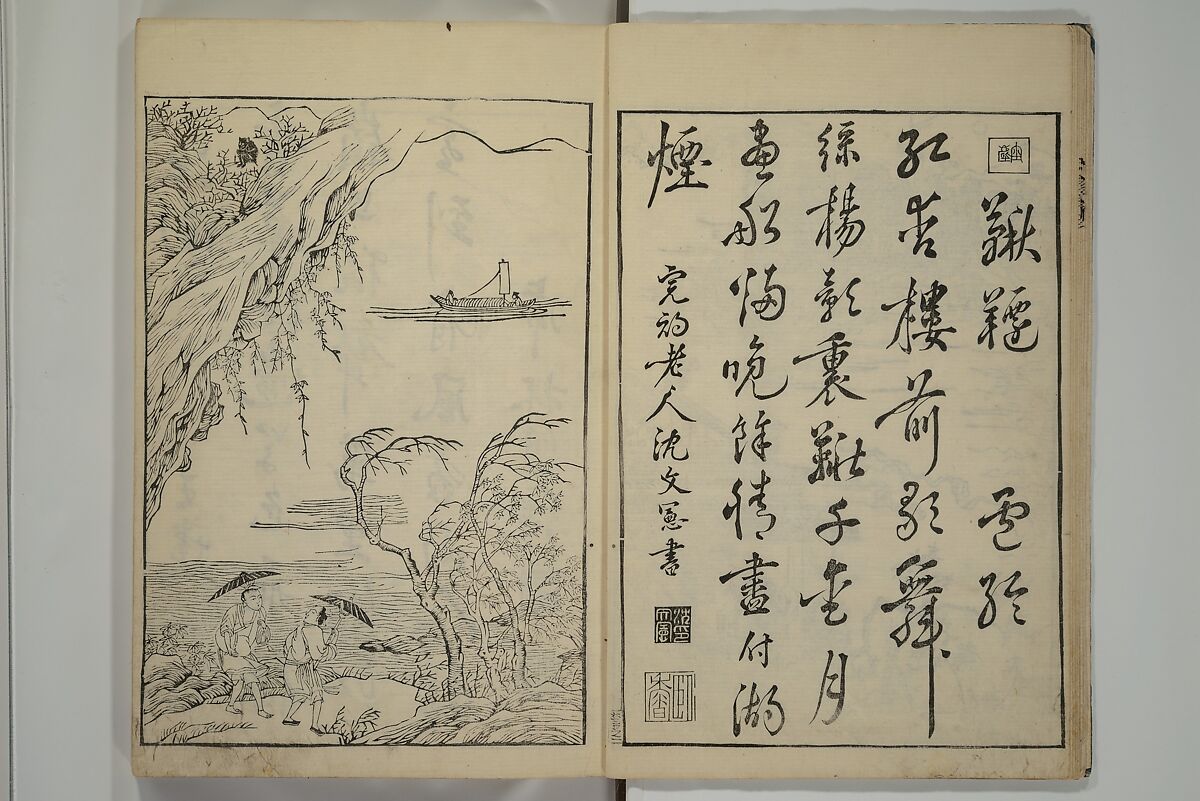 鞦韆　盧綸
紅杏樓前歌舞
綠楊影裏鞦千月
畫船歸晚餘情盡付湖
煙
完初老人沈文憲書